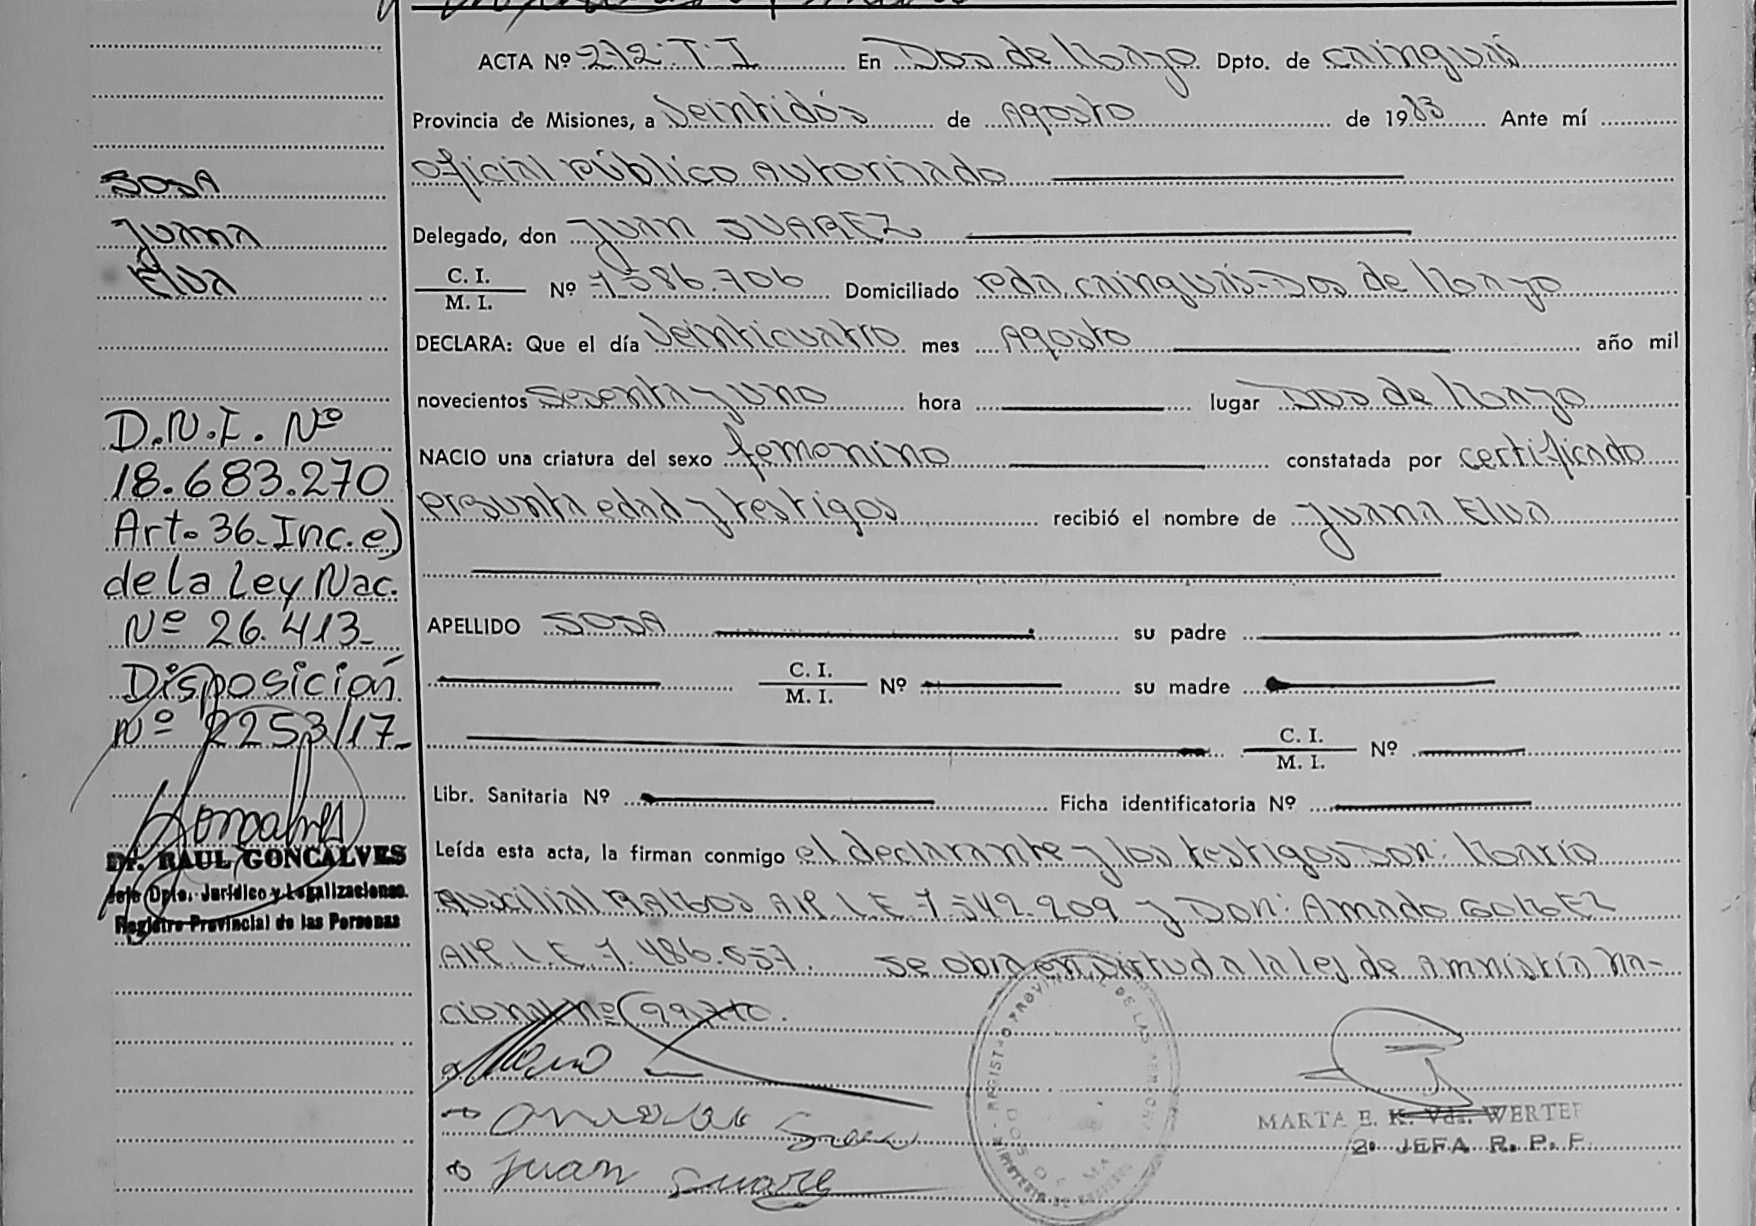 ACTA Nº 272. T. I En Dos de Mayo Dpto. de Cainguás
Provincia de Misiones, a Veintidós de Agosto de 1983 Ante mí
Oficial Público Autorizado
Delegado, don Juan SUAREZ
C. I.
M. I. Nº 7.586.706 Domiciliado Pda. Cainguás-Dos de Mayo
DECLARA: Que el día Veinticuatro mes Agosto año mil
novecientos Sesenta y Uno hora lugar Dos de Mayo
NACIO una criatura del sexo femenino constatada por certificado
presunta edad y testigos recibió el nombre de Juana Elva
APELLIDO SOSA su padre
C. I.
M. I. Nº su madre
C. I.
M. I. Nº
Libr. Sanitaria Nº Ficha identificatoria Nº
Leída esta acta, la firman conmigo el declarante y los testigos Don: Mario
Auxilial RAMOS M.I.L.E 7.542.209 y Don: Amado GOMEZ
M.I.L.E 7.486.557. Se obra en virtud a la ley de Amnistía Na-
cional nº
Juan Suarez
MARTA E. K. Vda. WERTER
2º JEFA R. P. P.
SOSA
Juana
Elva
D.N.I. Nº
18.683.270
Art. 36-Inc. e)
de la Ley Nac.
Nº 26.413-
Disposición
Nº 2253/17-
Dr. RAUL GONCALVES
Jefe Dpto. Jurídico y Legalizaciones
Registro Provincial de las Personas